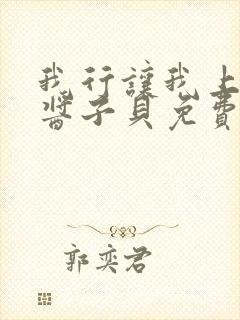 我行讓我上
醬子貝免費
郭奕君